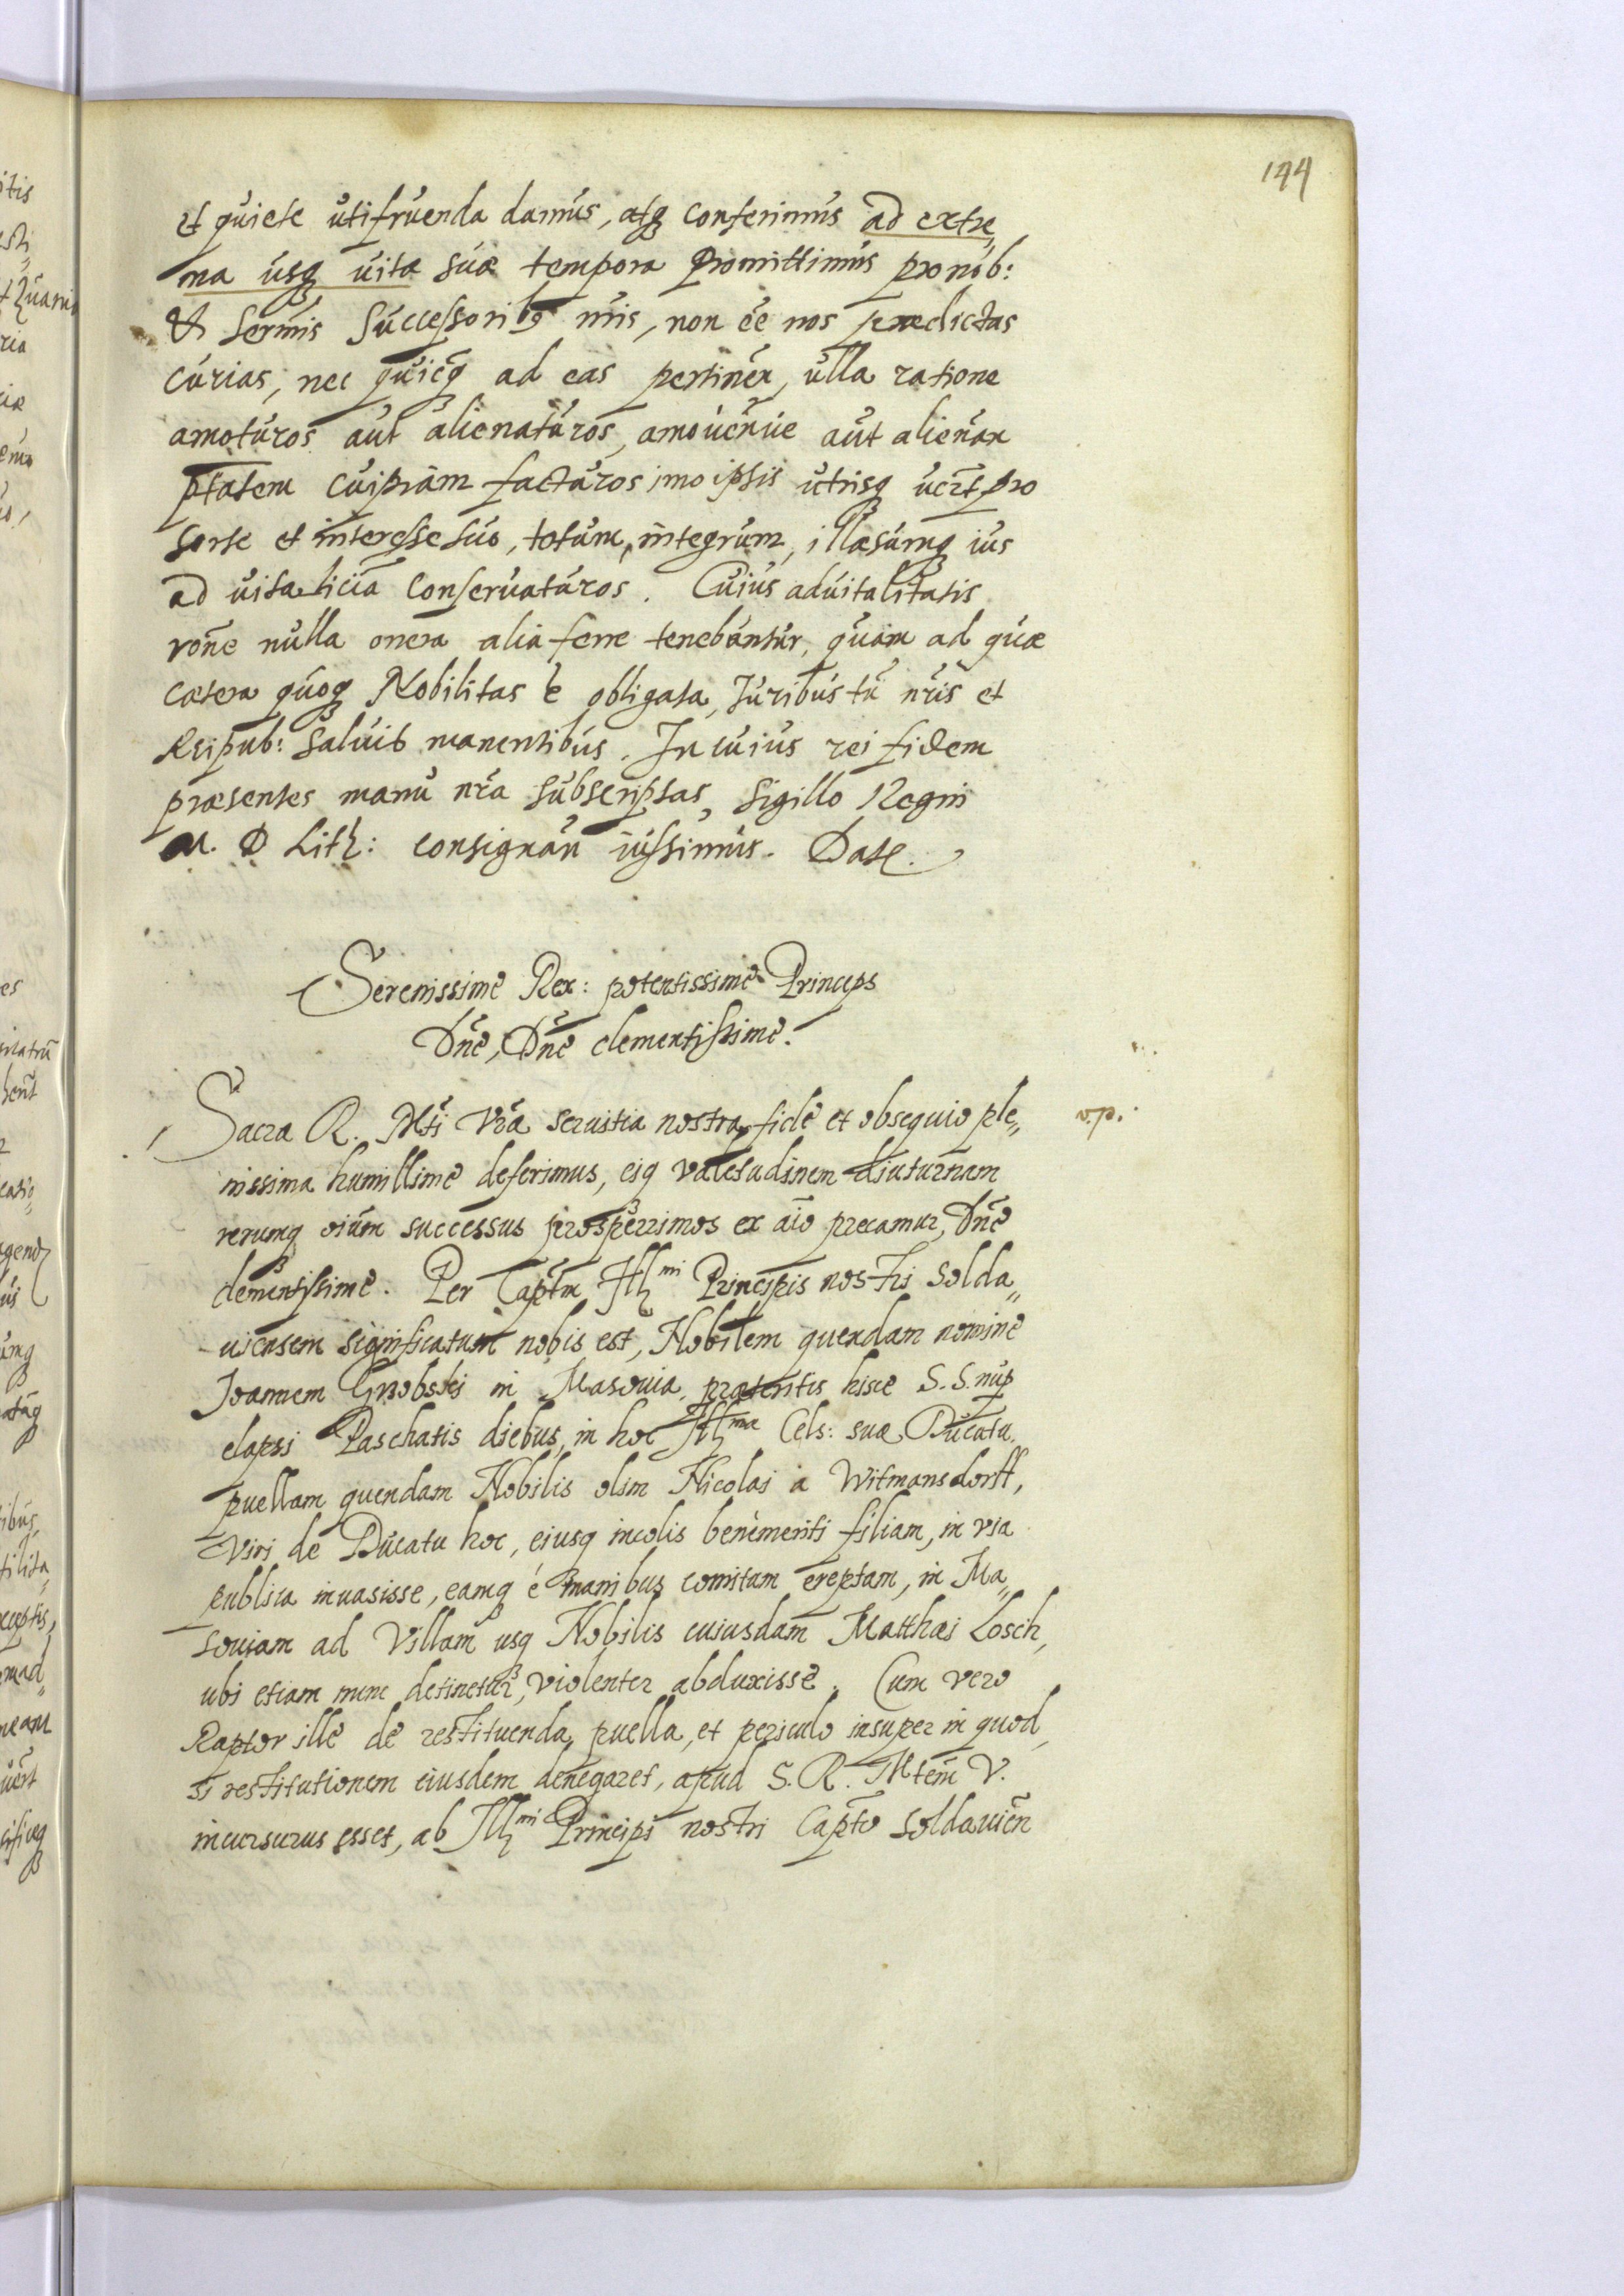 144
et quiete utifruenda damus, atq conferimus ad extre„
ma usq uitæ suæ tempora Promittimus pro nob:
& Sermis Successoribq nris, non ēe nos prædictas
curias, nec quicq ad eas pertinēn, ulla ratione
amoturos aut alienaturos, amouēnue aut alienān
ptatem cuipiam facturos imo ipsis utrisq uert pro
sorte et interesse suo, totum, integrum, illæsumq ius
ad uitaliciā conseruaturos. Cuius aduitalitatis
rone nulla onera alia ferre tenebuntur, quam ad quæ
cætera quoq Nobilitas ē obligata, Juribus tū nris et
Reipub: saluis manentibus. In cuius rei fidem
præsentes manu nra subscriptas, sigillo Regni
M. D Lith: consignari iussimus. Datæ.
Serenissime Rex: potentissime Princeps
Dne, Dne clementissime.
Sacra R. Mti Vra seruitia nostra fide et obsequio ple„
v.p.
nissima humillime deferimus, eiq valetudinem diuturnam
rerumq oium successus prosperrimos ex aio precamur, Dne
clementissime. Per Captm Illmi Principis nostri Solda„
uiensem significatum nobis est, Nobilem quendam nomine
Joannem Grobski in Masouia, præteritis hisce S. S. nup
elapsi Paschatis diebus, in hoc Illmæ Cels: suæ Ducatu.
puellam quendam Nobilis olim Nicolai a Witmansdorff,
Viri de Ducatu hoc, eiusq incolis benemeriti filiam, in via
publica inuasisse, eamq é manibus comitum ereptam, in Ma„
souiam ad Villam usq Nobilis cuiusdam Matthæi Losch,
ubi etiam nunc detinetur, violenter abduxisse. Cum vero
Raptor ille de restituenda puella, et periculo insuper in quod,
si restitutionem eiusdem denegaret, apud S. R. Mtem V.
incursurus esset, ab Illmi Principi nostri Capto Soldauien